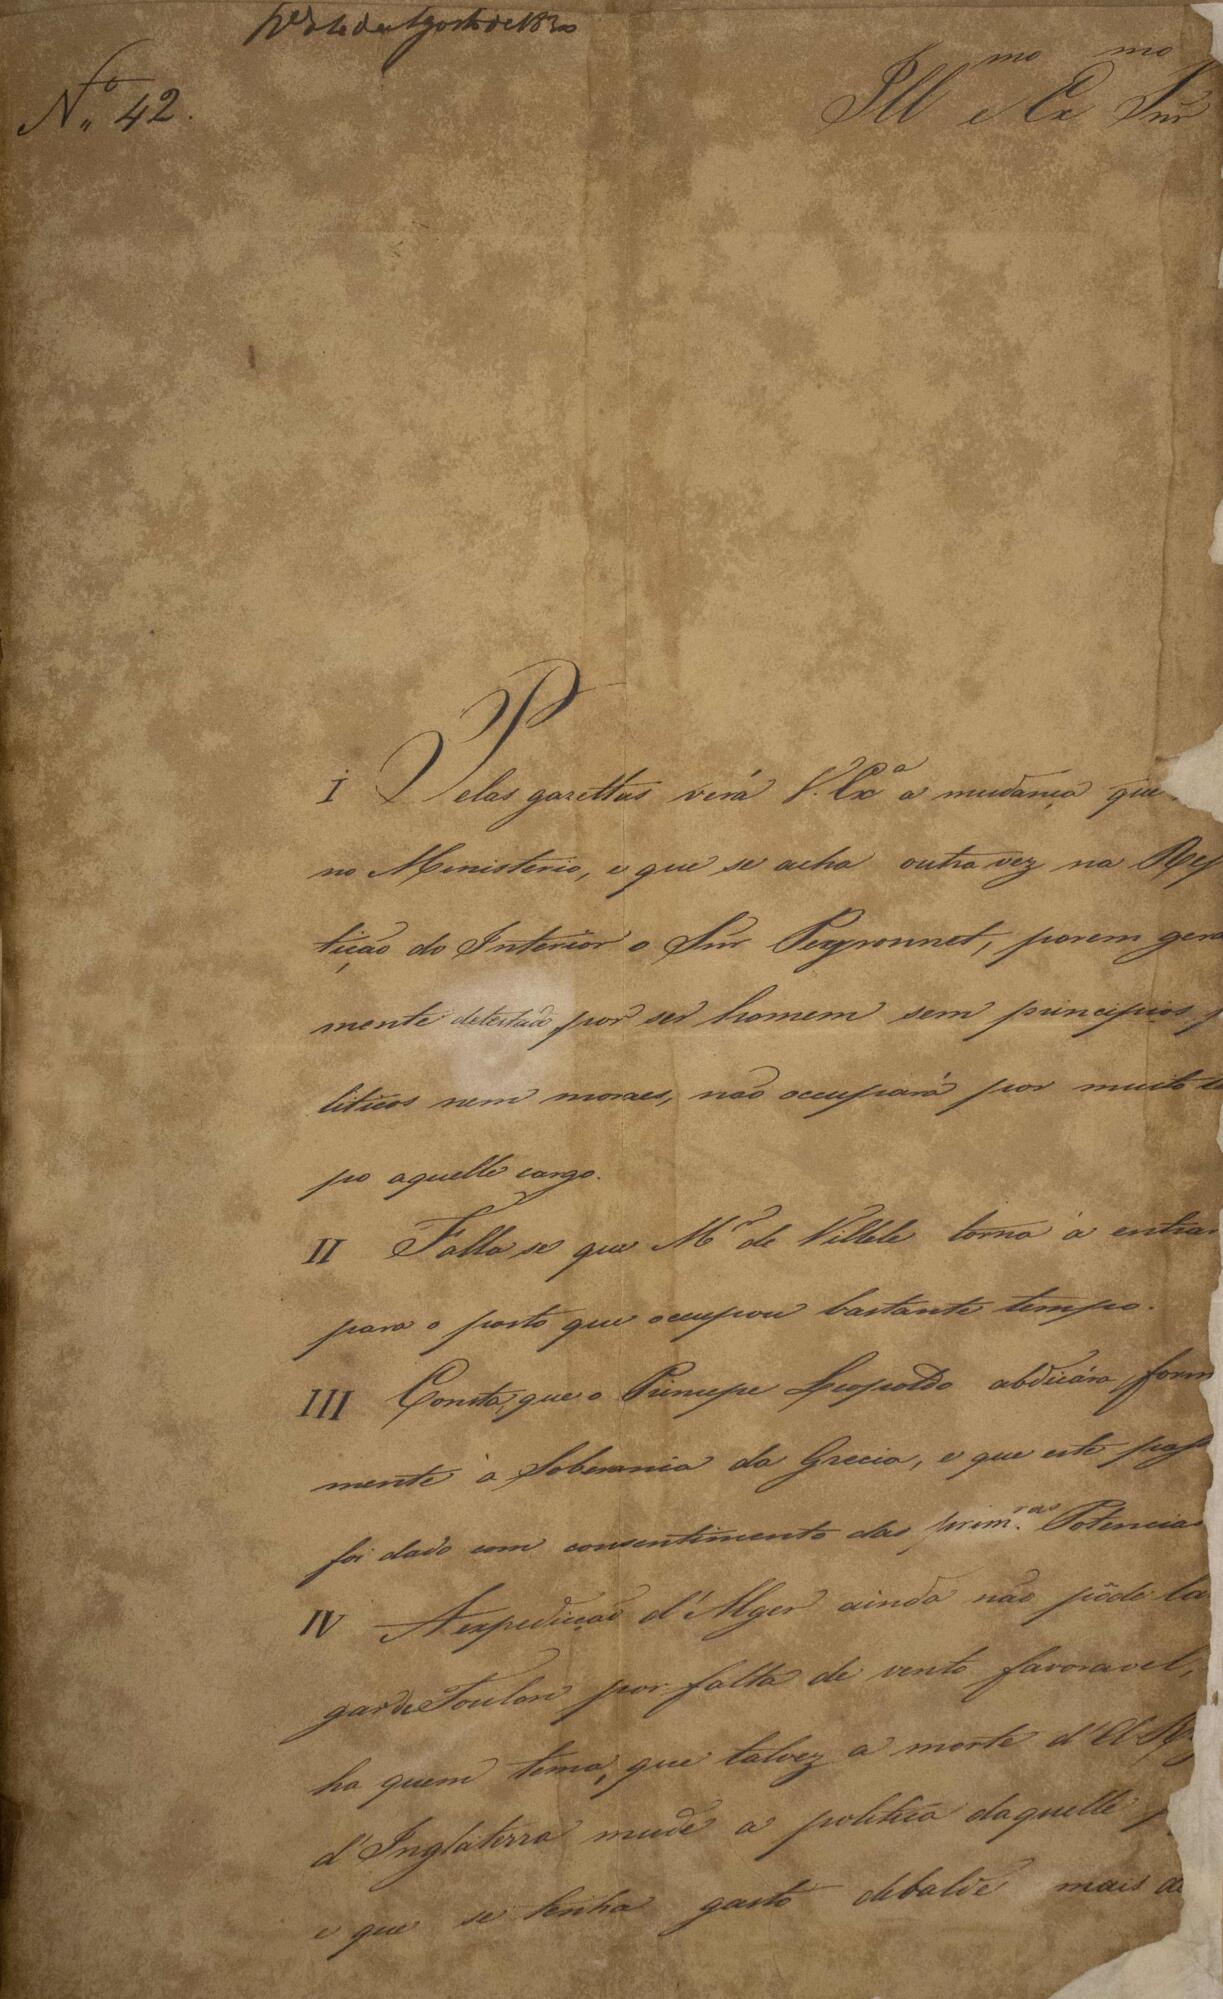 de Agosto de 1830
Nº 42.
Illmo e Exmo Snr
I Pelas gazettas verá V. Exª a mudança que
no Ministerio, e que se acha outra vez na Rep
tição do Interior o Snr Peyronnet, porem gera
mente detestado por ser homem sem principios p
liticos nem moraes, não occupará por muito te
po aquelle cargo.
II Falla se que Mr de Villele torna á entrar
para o posto que occupou bastante tempo.
III Consta, que o Principe Leopoldo abdicára form
mente á Soberania da Grecia, e que este pass
foi dado com consentimento das prim.ras Potencias
IV A expedicção d'Alger ainda não pôde la
gar de Toulon por falta de vento favoravel,
ha quem tema, que talvez a morte d'El Re
d'Inglaterra mude a politica daquelle p
e que se tenha gasto debalde mais de